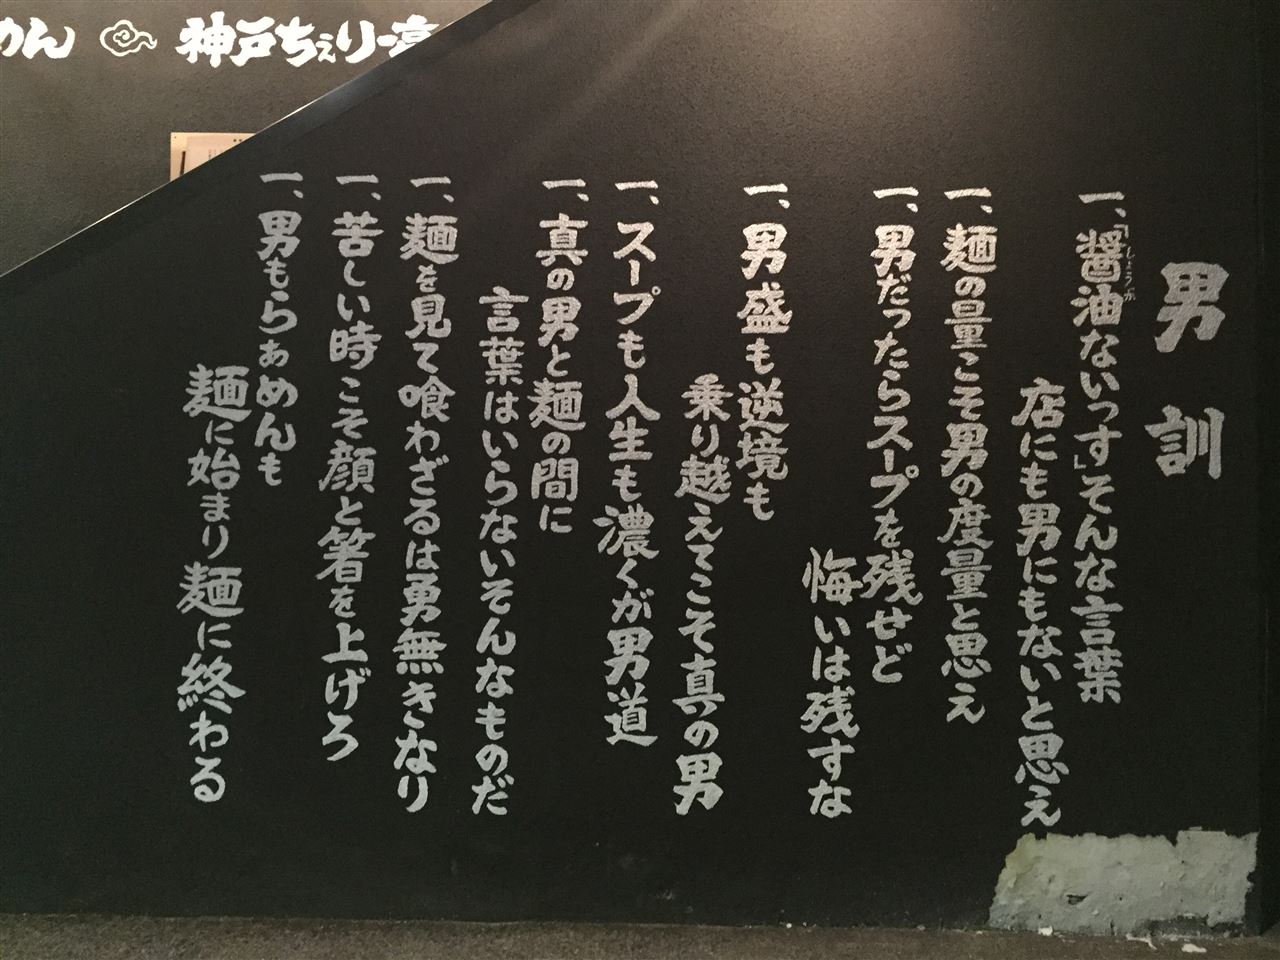 めん 神戸ちぇりー亭
男訓
一、「醤油ないっす」そんな言葉
しょうが
店にも男にもないと思え
一、麺の量こそ男の度量と思え
一、男だったらスープを残せど
悔いは残すな
一、男盛も逆境も
乗り越えてこそ真の男
一、スープも人生も濃くが男道
一、真の男と麺の間に
言葉はいらないそんなものだ
一、麺を見て喰わざるは勇無きなり
一、苦しい時こそ顔と箸を上げろ
一、男もらぁめんも
麺に始まり麺に終わる